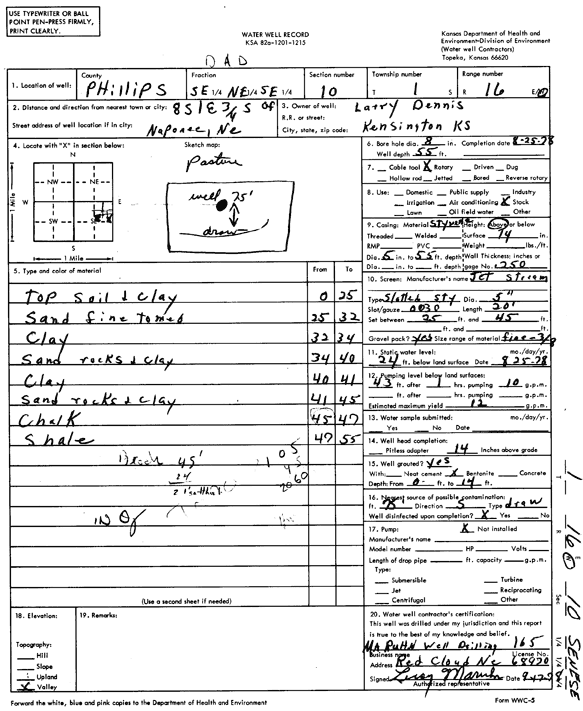 USE TYPEWRITER OR BALL
POINT PEN-PRESS FIRMLY,
PRINT CLEARLY.
WATER WELL RECORD
KSA 82a-1201-1215
Kansas Department of Health and
Environment-Division of Environment
(Water well Contractors)
Topeka, Kansas 66620
DAD
1. Location of well: County Phillips Fraction SE 1/4 NE 1/4 SE 1/4 Section number 10 Township number T 1 S Range number R 16 E/W
2. Distance and direction from nearest town or city: 8 S 1 E 3/4 S of
Street address of well location if in city: Naponee, Ne
3. Owner of well: Larry Dennis
R.R. or street:
City, state, zip code: Kensington KS
4. Locate with "X" in section below:
N
NW NE
W E
SW SE
S
1 Mile
1 Mile
Sketch map:
Pasture
well 75'
draw
5. Type and color of material From To
Top Soil & Clay 0 25
Sand fine to med 25 32
Clay 32 34
Sand rocks & clay 34 40
Clay 40 41
Sand rocks & clay 41 45
Chalk 45 47
Shale 47 55
45'
24
21
105
45
2060
(Use a second sheet if needed)
6. Bore hole dia. 8 in. Completion date 8-25-78
Well depth 55 ft.
7. Cable tool X Rotary Driven Dug
Hollow rod Jetted Bored Reverse rotary
8. Use: Domestic Public supply Industry
Irrigation Air conditioning X Stock
Lawn Oil field water Other
9. Casing: Material Styrene Height: Above or below
Threaded Welded Surface 14 in.
RMP PVC Weight lbs./ft.
Dia. 5 in. to 55 ft. depth Wall Thickness: inches or
Dia. in. to ft. depth gage No. .250
10. Screen: Manufacturer's name Jet Stream
Type Slotted Sty Dia. 5"
Slot/gauze .0030 Length 20'
Set between 25 ft. and 45 ft.
ft. and ft.
Gravel pack? yes Size range of material fine-3/8
11. Static water level: mo./day/yr.
24 ft. below land surface Date 8 25-78
12. Pumping level below land surfaces:
43 ft. after 1 hrs. pumping 10 g.p.m.
ft. after hrs. pumping g.p.m.
Estimated maximum yield 12 g.p.m.
13. Water sample submitted: mo./day/yr.
Yes No Date
14. Well head completion:
Pitless adapter 14 Inches above grade
15. Well grouted? yes
With: Neat cement X Bentonite Concrete
Depth: From 0 ft. to 14 ft.
16. Nearest source of possible contamination:
ft. Direction S Type draw
Well disinfected upon completion? X Yes No
17. Pump: X Not installed
Manufacturer's name
Model number HP Volts
Length of drop pipe ft. capacity g.p.m.
Type:
Submersible Turbine
Jet Reciprocating
Centrifugal Other
18. Elevation:
Topography:
Hill
Slope
Upland
X Valley
19. Remarks:
20. Water well contractor's certification:
This well was drilled under my jurisdiction and this report
is true to the best of my knowledge and belief.
Well Drilling 165
Business name License No.
Address Red Cloud Ne 68970
Signed Date
Authorized representative
Forward the white, blue and pink copies to the Department of Health and Environment
Form WWC-5
1 16 W 10 SENESE
T R E W Sec 1/4 1/4 1/4